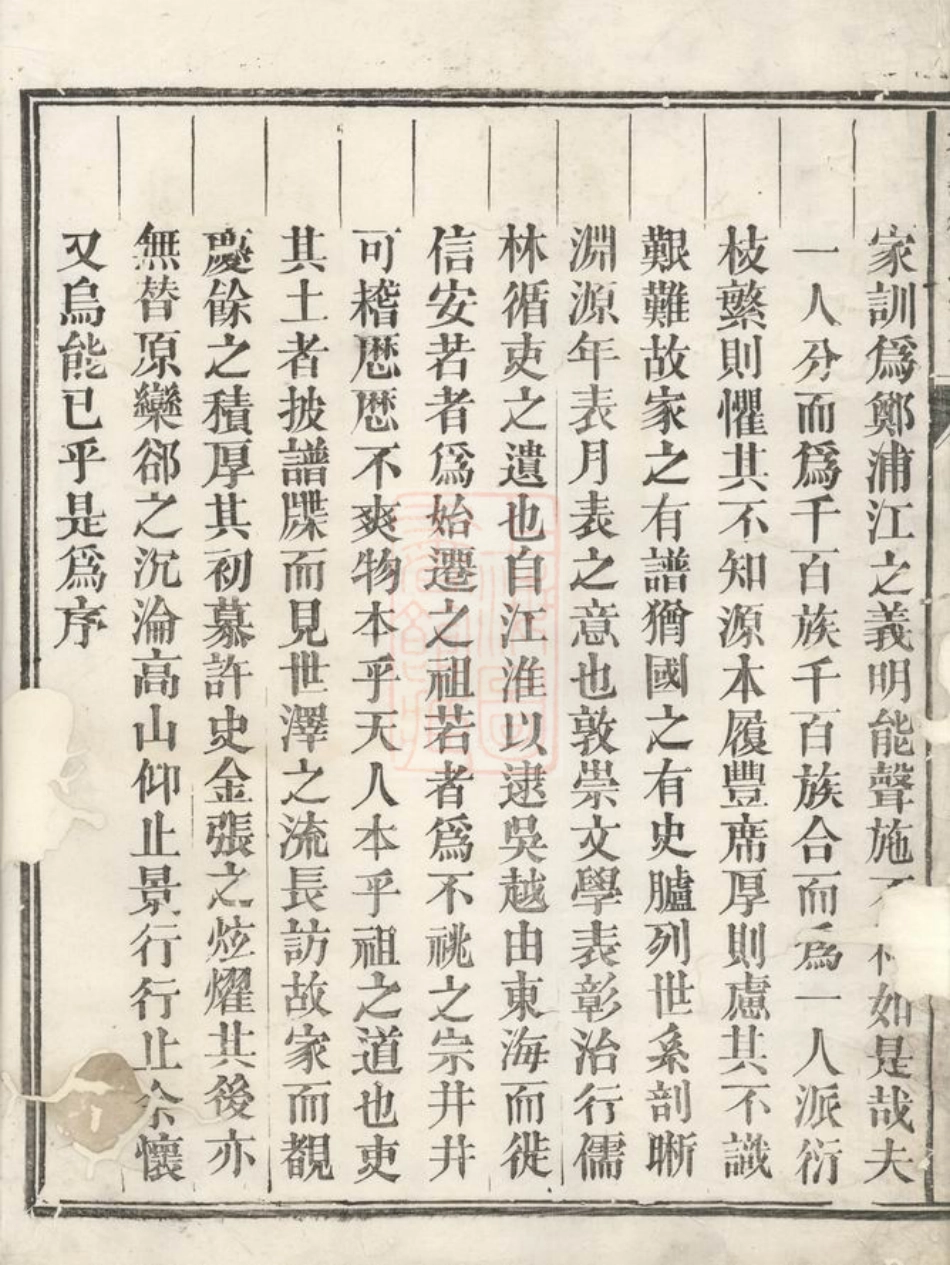 家訓爲鄭浦江之義明能聲施不如是哉夫
一人分而爲千百族千百族合而爲一人派衍
枝蘩則懼其不知源本履豐席厚則慮其不識
艱難故家之有譜猶國之有史臚列世系剖晰
淵源年表月表之意也敦崇文學表彰治行儒
林循吏之遺也自江淮以逮吳越由東海而徙
信安若者爲始遷之祖若者爲不祧之宗井井
可稽歷歷不爽物本乎天人本乎祖之道也吏
其土者披譜牒而見世澤之流長訪故家而覩
慶餘之積厚其初慕許史金張之炫燿其後亦
無替原欒郤之沉淪高山仰止景行行止余懷
又烏能已乎是爲序